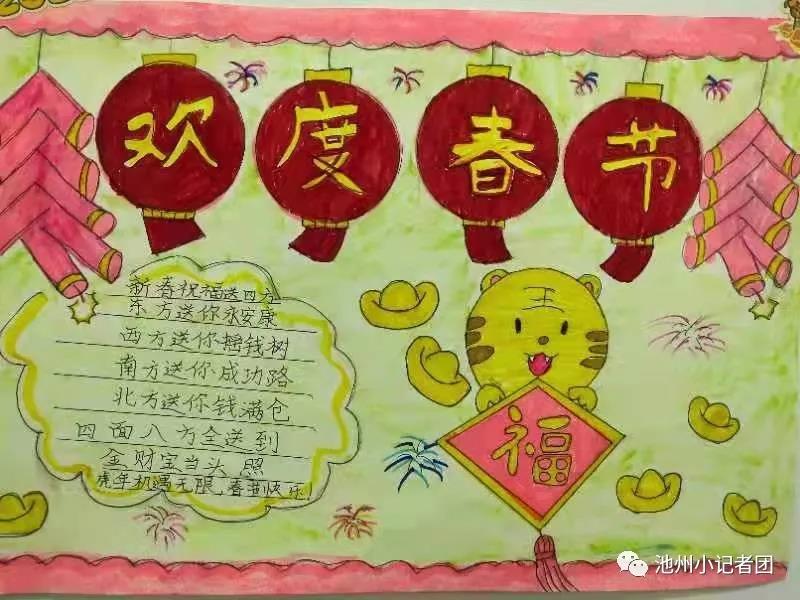 欢度春节
新春祝福送四方
东方送你永安康
西方送你摇钱树
南方送你成功路
北方送你钱满仓
四面八方全送到
金财宝当头照
虎年机遇无限,春节快乐!
王
福
池州小记者团